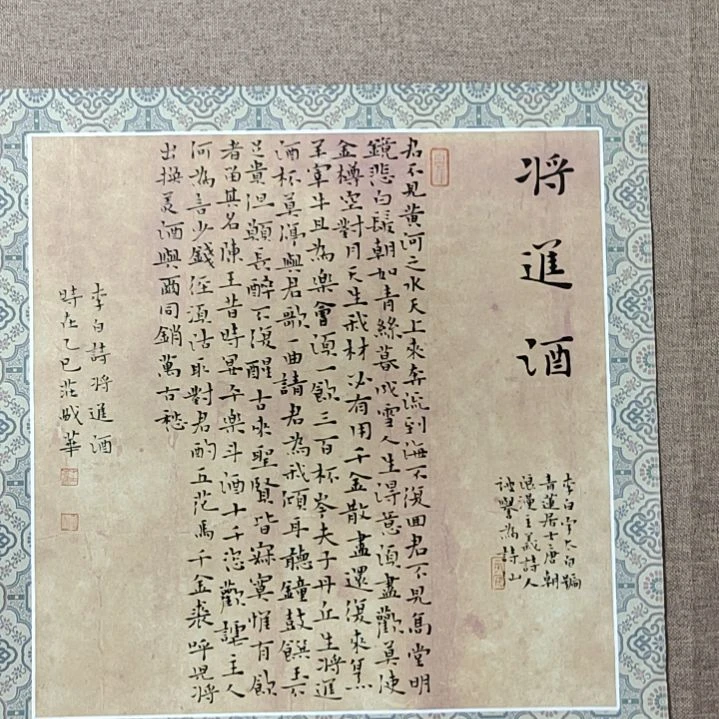 將進酒
李白字太白號
青蓮居士唐朝
浪漫主義詩人
被譽為詩
君不見黃河之水天上來奔流到海不復回君不見高堂明
鏡悲白髮朝如青絲暮成雪人生得意須盡歡莫使
金樽空對月天生我材必有用千金散盡還復來烹
羊宰牛且為樂會須一飲三百杯岑夫子丹丘生將進
酒杯莫停與君歌一曲請君為我傾耳聽鐘鼓饌玉不
足貴但願長醉不復醒古來聖賢皆寂寞惟有飲
者留其名陳王昔時宴平樂斗酒十千恣歡謔主人
何為言少錢徑須沽取對君酌五花馬千金裘呼兒將
出換美酒與爾同銷萬古愁
李白詩將進酒
時在乙巳莊華